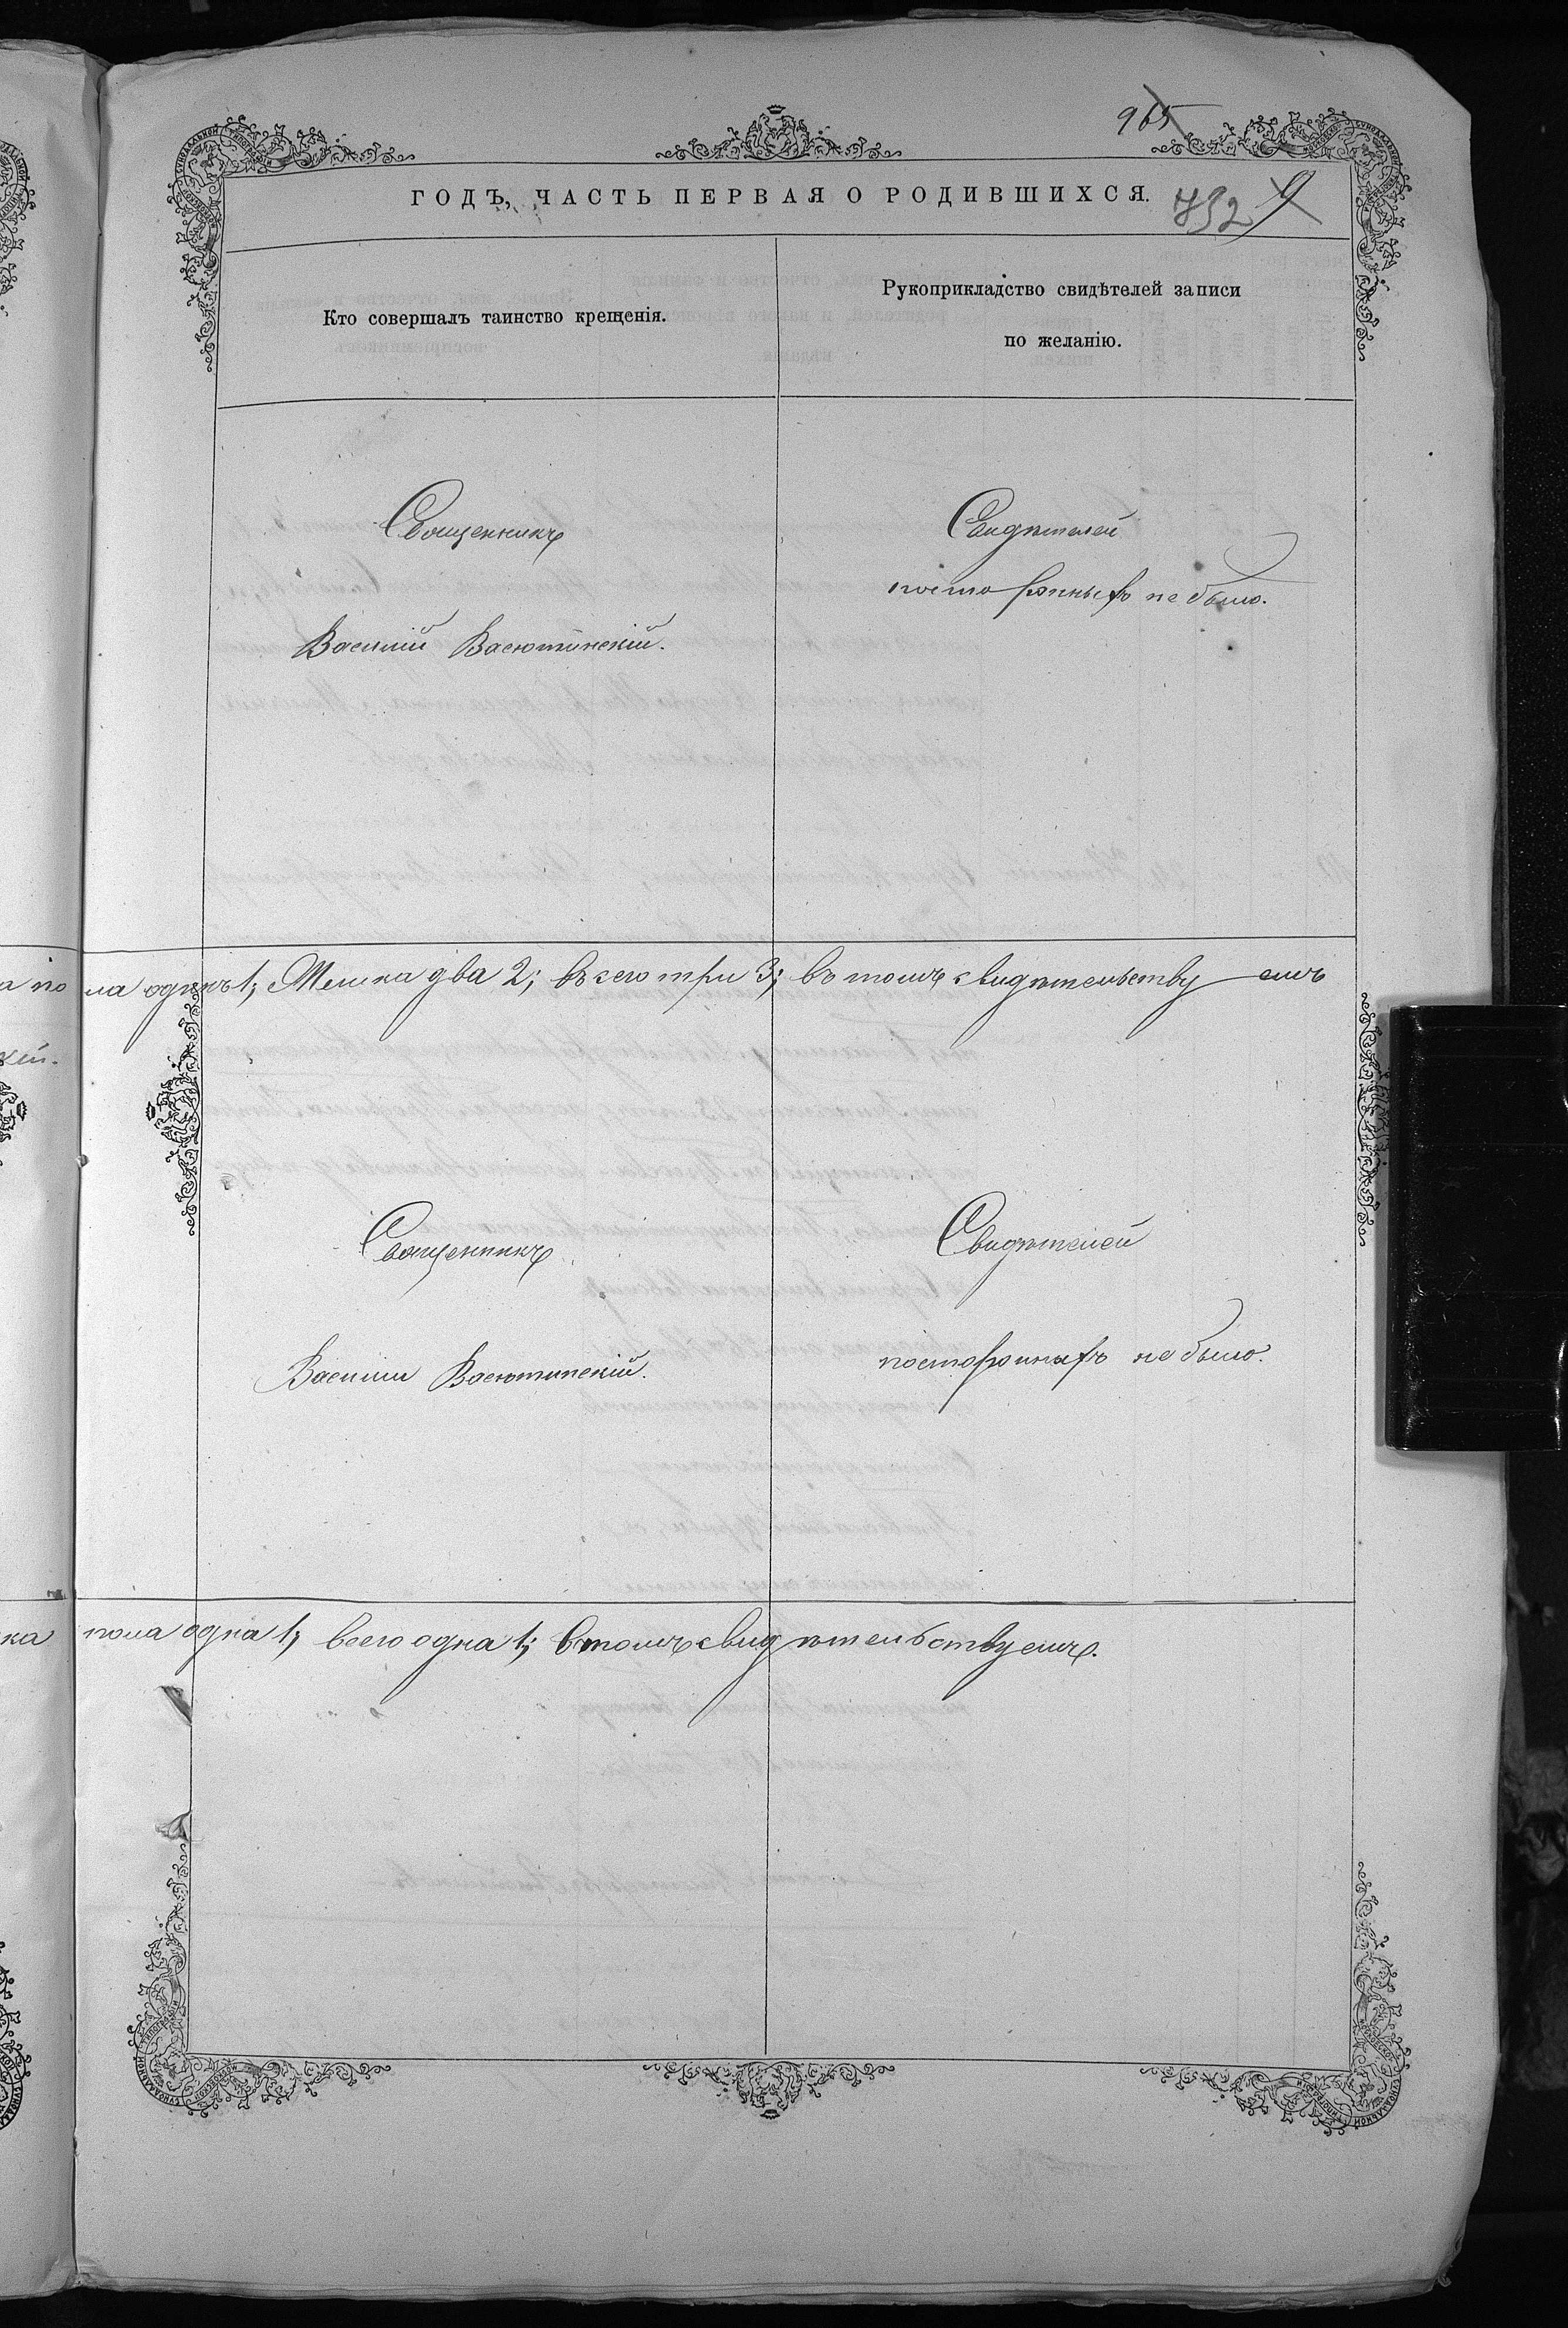 965
ГОДЪ, ЧАСТЬ ПЕРВАЯ О РОДИВШИХСЯ.
732 9
Кто совершалъ таинство крещенія.
Рукоприкладство свидѣтелей записи
по желанію.
Священникъ
Василій Васютинскій.
Свидѣтелей
постороннихъ не было.
а по ла одинъ 1; Женска два 2; всего три 3; въ томъ свидѣтельству емъ
кій.
Священникъ
Василій Васютинскій.
Свидѣтелей
постороннихъ не было.
ка пола одна 1; всего одна 1; въ томъ свидѣтельствуемъ.